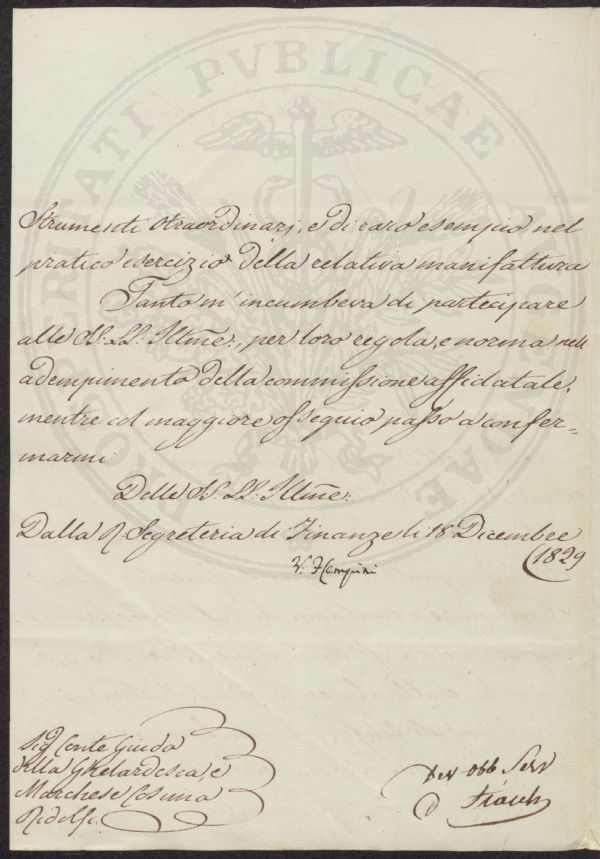 PROSPERITATI PVBLICAE AVGENDAE
Strumenti straordinarj, e di raro esempio nel
pratico esercizio della relativa manifattura
Tanto m'incumbeva di partecipare
alle SS. LL. Illme:, per loro regola, e norma nell
adempimento della commissione affidatale,
mentre col maggiore ossequio passo a confer=
marmi
Delle SS. LL. Illme:
Dalla R. Segreteria di Finanze li 18 Dicembre
1829
V. Hempini
Sigg Conte Guido
della Gherardesca, e
Marchese Cosimo
Ridolfi
Dev Obb Serv